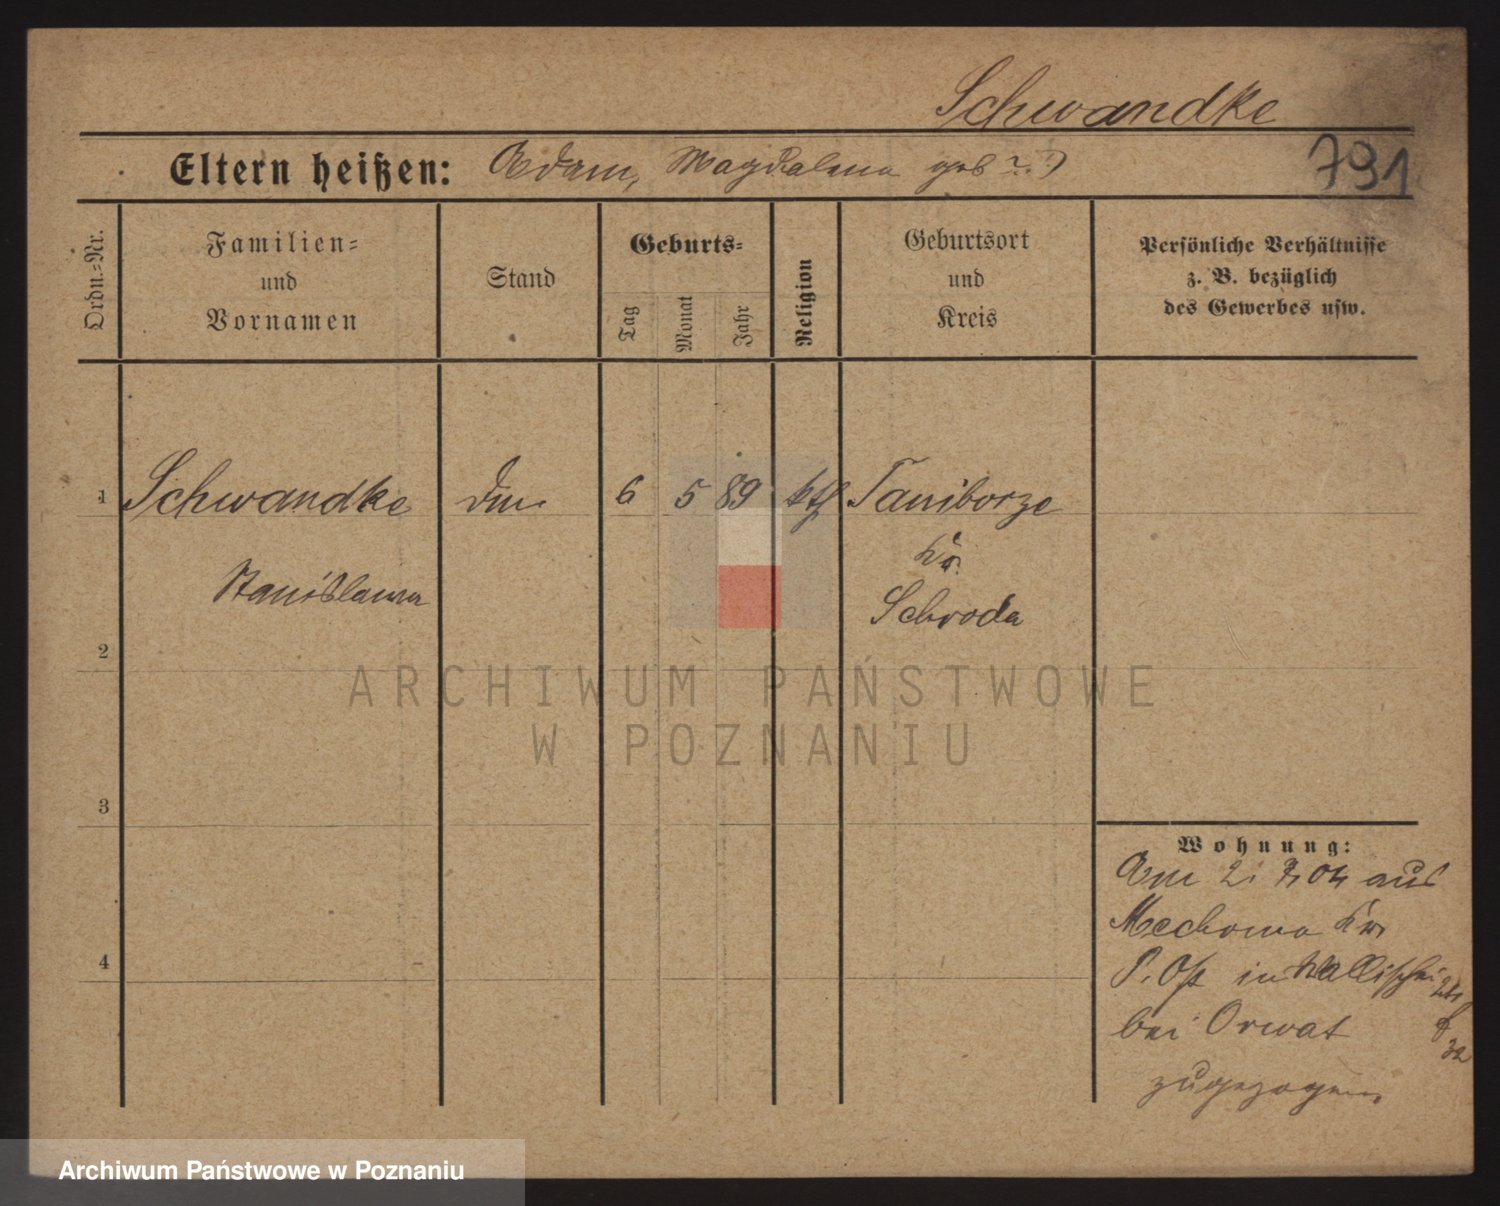 Schwandke
Eltern heißen: Adam, Magdalena geb ?.?
791
Ordn.-Nr.
Familien-
und
Vornamen
Stand
Geburts-
Tag
Monat
Jahr
Religion
Geburtsort
und
Kreis
Persönliche Verhältnisse
z. B. bezüglich
des Gewerbes usw.
1 Schwandke 6 5 89 kth Taniborze
Kr.
Stanislawa
Schroda
2
3
4
ARCHIWUM PAŃSTWOWE
W POZNANIU
Wohnung:
Am 2. 04 aus
Mechowo Kr.
P. Ost in Wallischei
bei Orwat
32
zugezogen
Archiwum Państwowe w Poznaniu